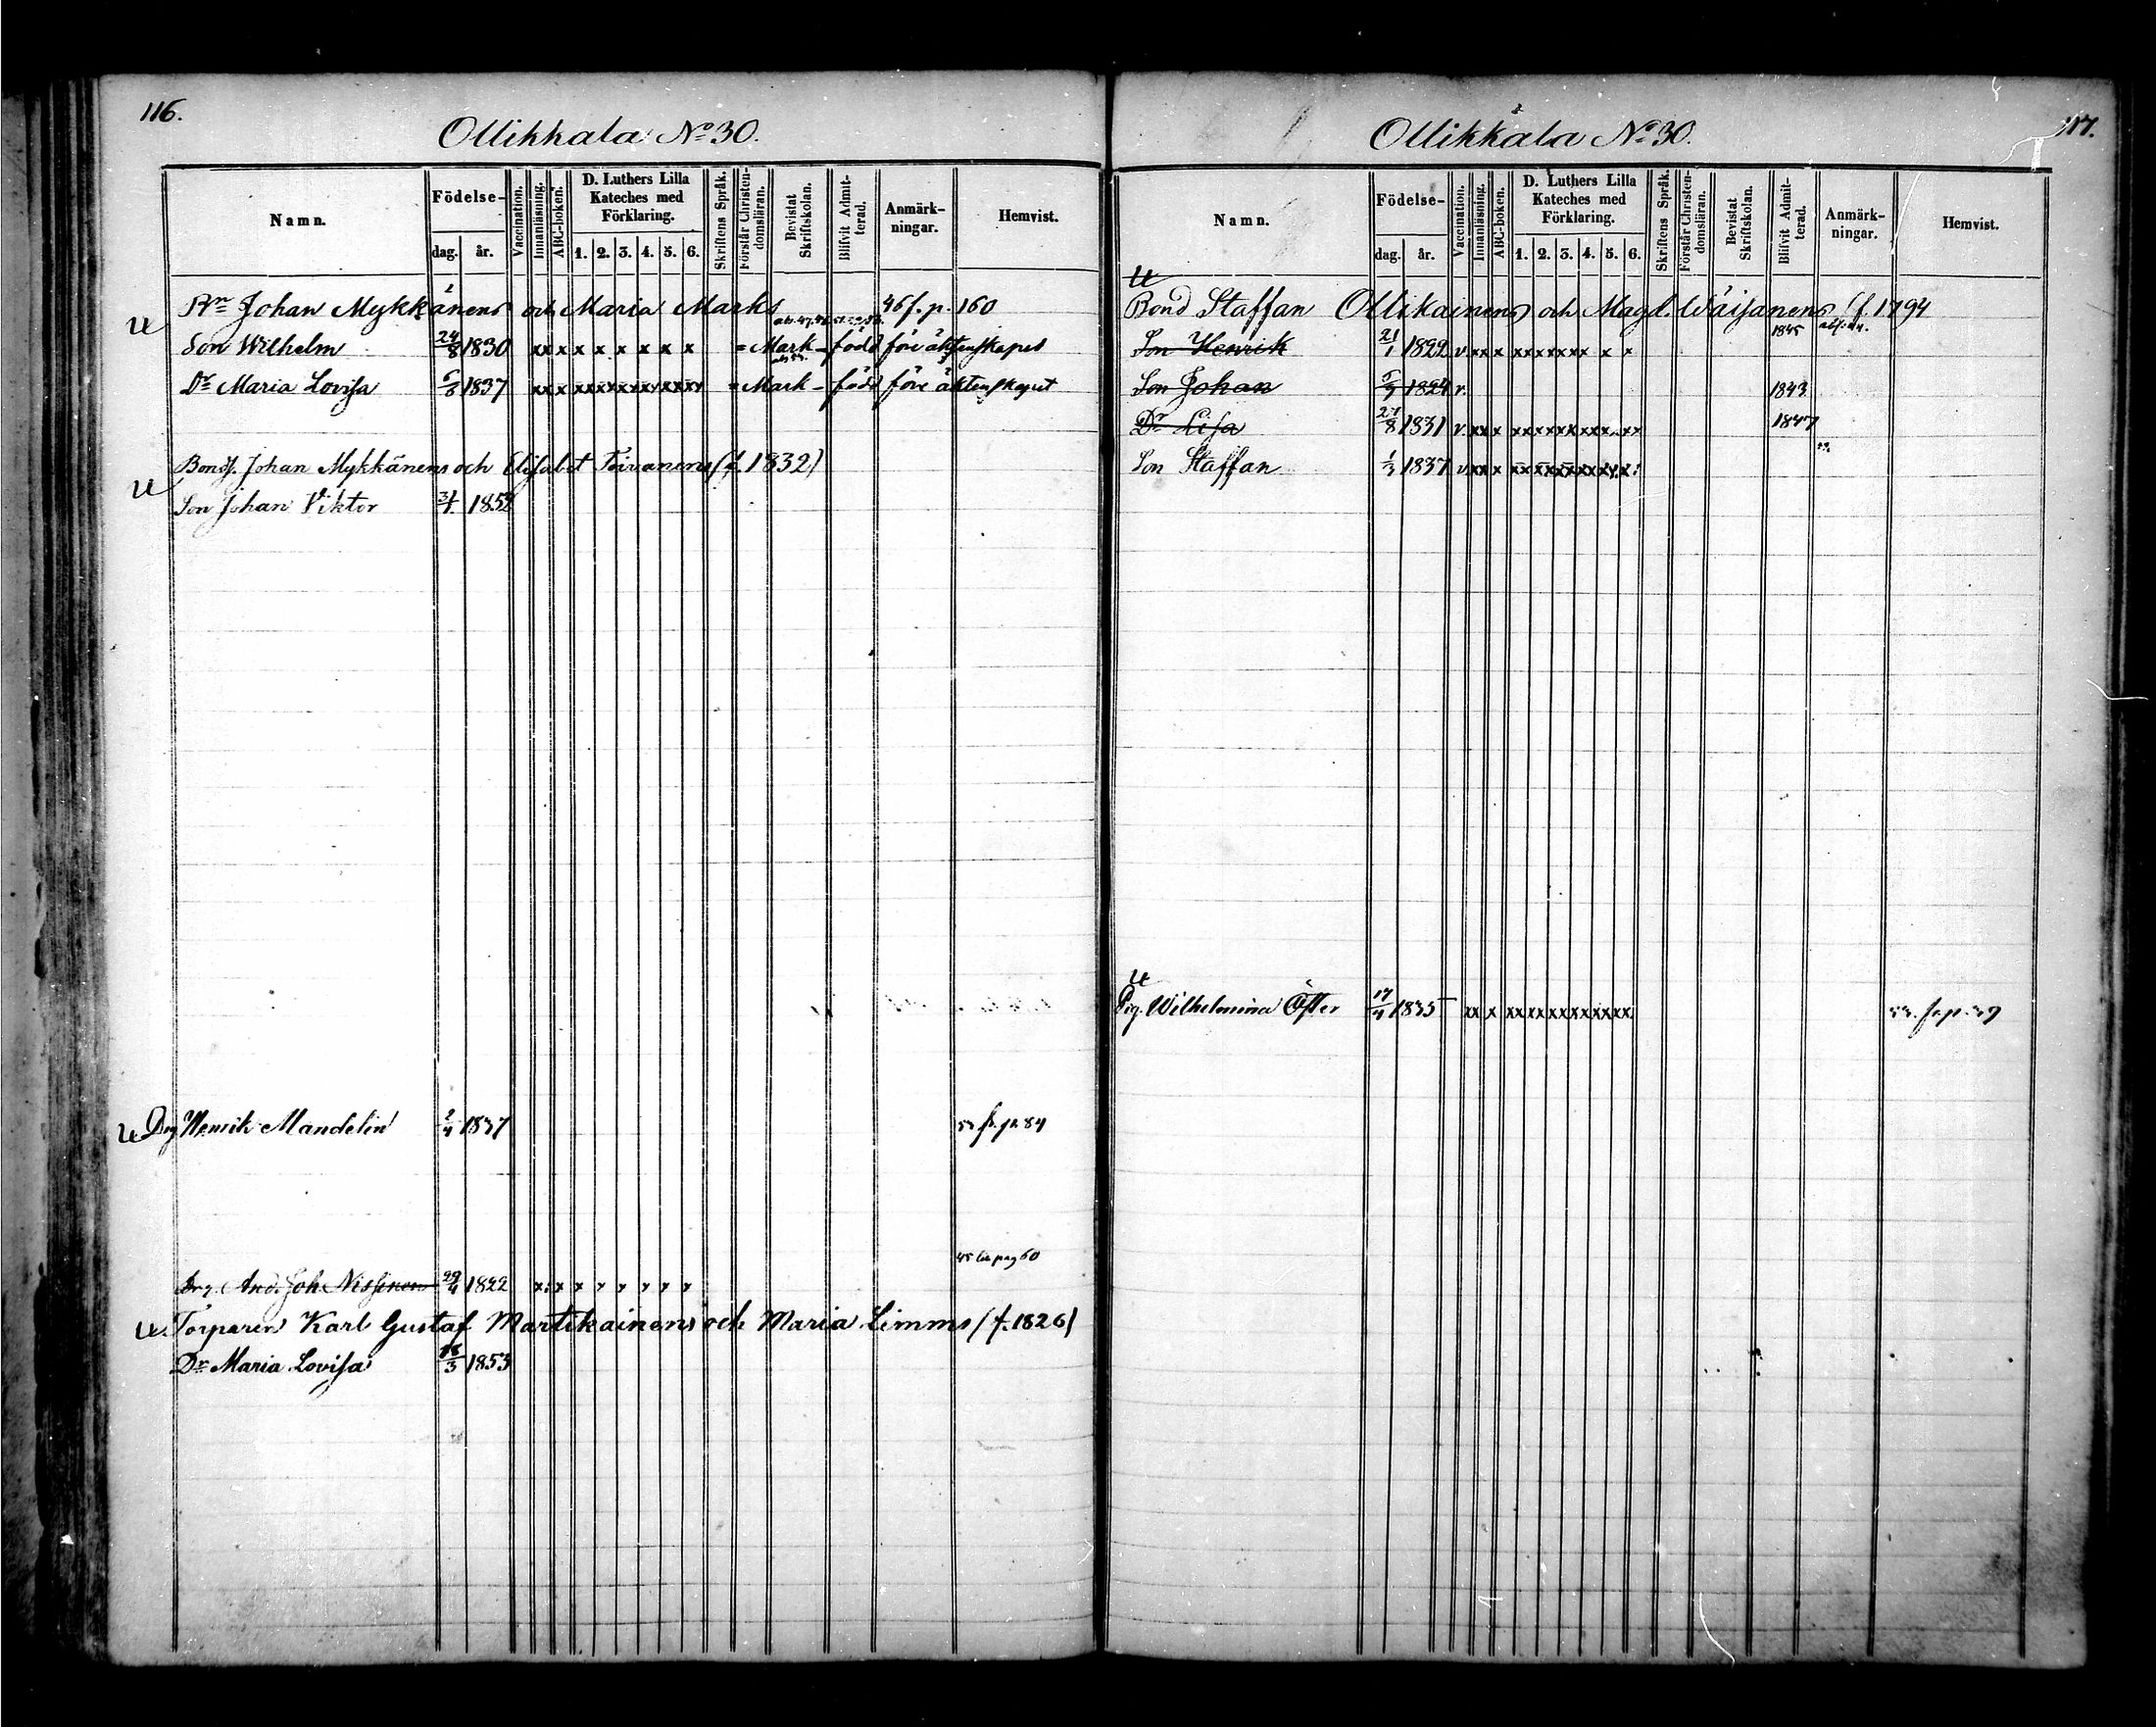 116.
Ollikkala No 30.
Namn.
Födelse-
dag.
år.
Vaccination.
Innanläsning.
ABC-boken.
D. Luthers Lilla
Kateches med
Förklaring.
1. 2. 3. 4. 5. 6.
Skriftens Språk.
Förstår Christen-
domsläran.
Bevistat
Skriftskolan.
Blifvit Admit-
terad.
Anmärk-
ningar.
Hemvist.
Johan Mykkänens och Maria Marks 46 f. p. 160
Son Wilhelm 24/8 1830 xx x x x x x x x = Mark - född före äktenskapet
Dr Maria Lovisa 1837 xx x xx xx xx xx xx xx = Mark - född före äktenskapet
Bonds. Johan Mykkänens och Elisabet Toivanens (f. 1832)
Son Johan Viktor 31/1. 1852
Drg Henrik Mandelin 2/4 1837 53 fr. p. 84
45 pag 60
Drg. And. Joh Nissinen 29/4 1822 x x x x x x x x x
Torparen Karl Gustaf Martikainens och Maria Limms (f. 1826)
Dr Maria Lovisa 1853
117.
Ollikkala No 30.
Namn.
Födelse-
dag.
år.
Vaccination.
Innanläsning.
ABC-boken.
D. Luthers Lilla
Kateches med
Förklaring.
1. 2. 3. 4. 5. 6.
Skriftens Språk.
Förstår Christen-
domsläran.
Bevistat
Skriftskolan.
Blifvit Admit-
terad.
Anmärk-
ningar.
Hemvist.
Bond Staffan Ollikainens och Magd. Wäisänens (f. 1794
Son Henrik 21/1 1822 v. xx x xx xx xx x x x 1845
Son Johan 5/9 1824 v. 1843
Dr Lisa 27/8 1831 v. xx x xx xx xx xx xx xx 1847
Son Staffan 1/3 1837 v. xx x xx xx xx xx xx x
Pig. Wilhelmina Öster 17/4 1835 xx x xx xx xx xx xx xx 53. fr. p. 39